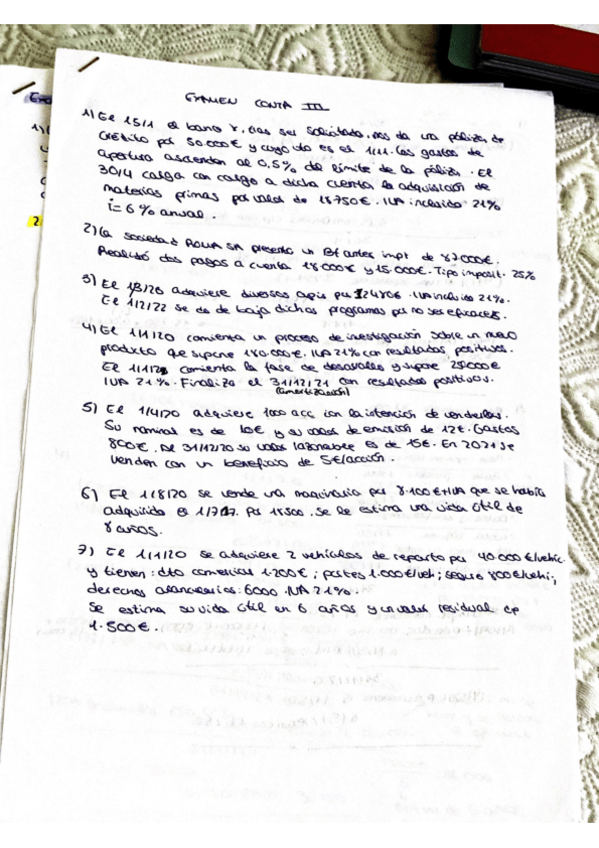 EXAMEN CONTA III
1) El 15/1 el banco Y, tras ser solicitada, nos da una póliza de
crédito por 50.000€ y cuyo vto es el 1/11. Los gastos de
apertura ascienden al 0,5% del límite de la póliza. El
30/4 carga con cargo a dicha cuenta la adquisición de
materias primas por valor de 18750€. IVA incluido 21%
i= 6% anual.
2) La sociedad AQUA SA presenta un Bº antes impt de 87000€.
Realizó dos pagos a cuenta 18.000€ y 15.000€. Tipo imposit. 25%
3) El 1/8/20 adquiere diversos IVA incluido 21%.
El 1/2/22 se da de baja dichos programas por no ser eficaces.
4) El 1/1/20 comienza un proceso de investigación sobre un nuevo
producto que supone 140.000€. IVA 21% con resultados positivos.
El comienza la fase de desarrollo y supone
IVA 21%. Finaliza el 31/12/21 con resultados positivos.
(amortización)
5) El 1/4/20 adquiere 1000 acc con la intención de venderlas.
Su nominal es de 10€ y su valor de emisión de 12€. Gastos
800€. Al 31/12/20 su valor razonable es de 15€. En 2021 se
venden con un beneficio de 5€/acción.
6) El 1/8/20 se vende una maquinaria por 8.100€+IVA que se había
adquirido el 1/7/17. Por 11500. Se le estima una vida útil de
8 años.
7) El 1/1/20 se adquiere 2 vehículos de reparto por 40 000€/vehíc
y tienen: dto comercial 1.200€; portes 1.000€/veh; seguro 800€/vehi;
derechos arancelarios: 6000. IVA 21%.
Se estima su vida útil en 6 años y un valor residual
1.500€.